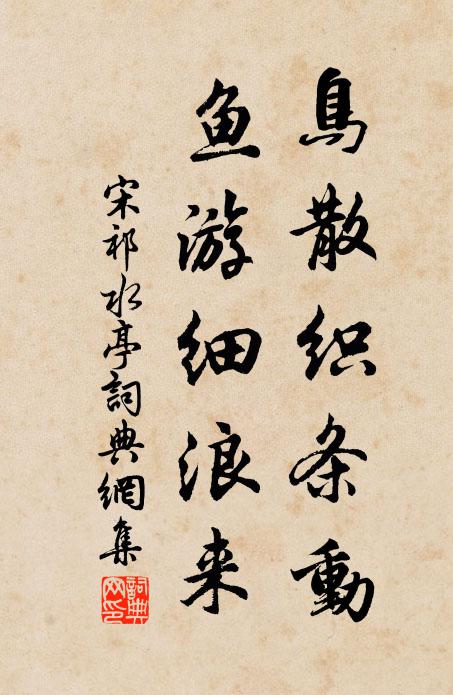 鳥散织条動
鱼游细浪来
宋祁水亭詞典網集
詞典网印